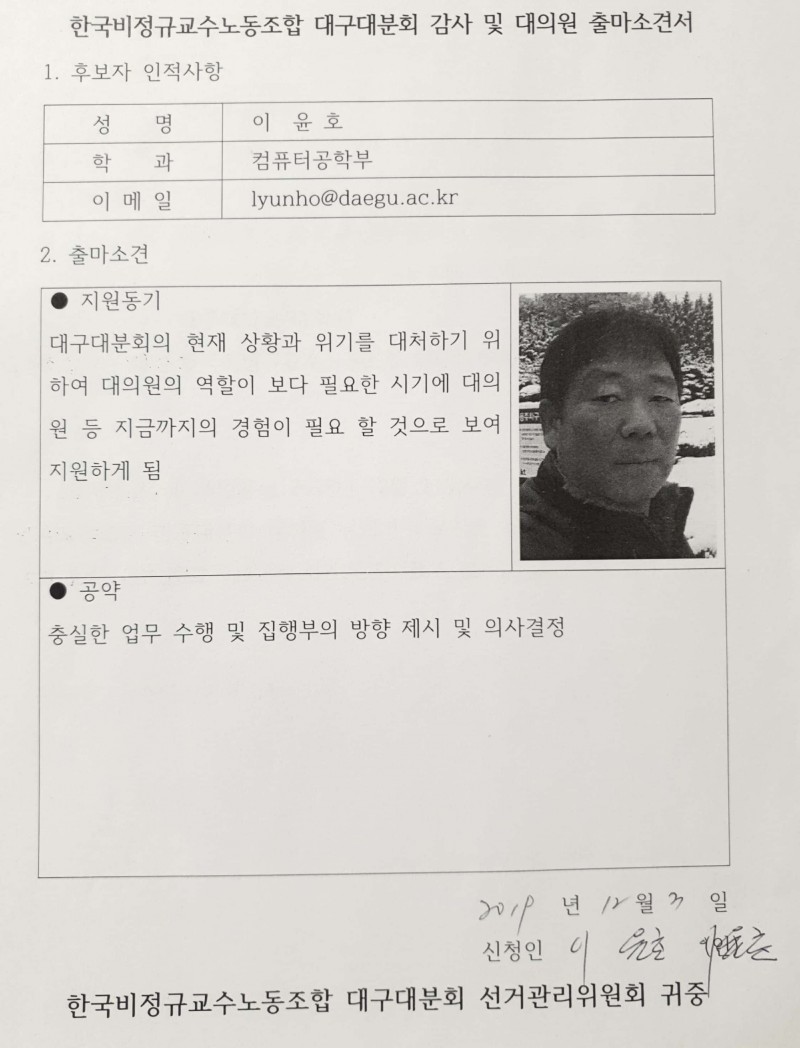 한국비정규교수노동조합 대구대분회 감사 및 대의원 출마소견서
1. 후보자 인적사항
성 명 이 윤 호
학 과 컴퓨터공학부
이 메 일 lyunho@daegu.ac.kr
2. 출마소견
● 지원동기
대구대분회의 현재 상황과 위기를 대처하기 위
하여 대의원의 역할이 보다 필요한 시기에 대의
원 등 지금까지의 경험이 필요 할 것으로 보여
지원하게 됨
● 공약
충실한 업무 수행 및 집행부의 방향 제시 및 의사결정
2019 년 12 월 3 일
신청인 이 윤호
한국비정규교수노동조합 대구대분회 선거관리위원회 귀중